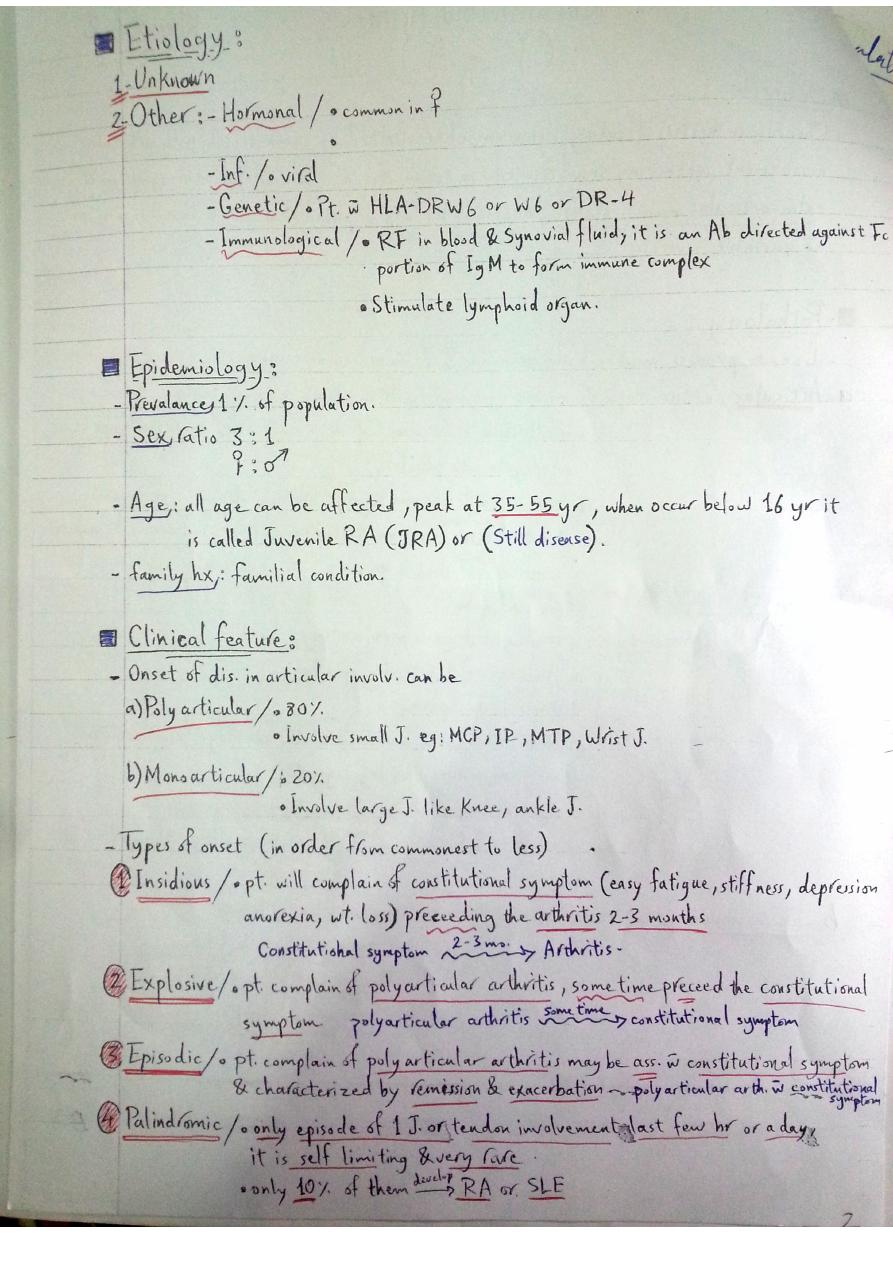 Etiology:
1-Unknown
2-Other:- Hormonal / • common in ♀
•
- Inf. / • viral
- Genetic / • Pt. w̄ HLA-DRW6 or W6 or DR-4
- Immunological / • RF in blood & Synovial fluid, it is an Ab directed against Fc
portion of IgM to form immune complex
• Stimulate lymphoid organ.
Epidemiology:
- Prevalance, 1 % of population.
- Sex, ratio 3 : 1
♀ : ♂
- Age,: all age can be affected, peak at 35-55 yr, when occur below 16 yr it
is called Juvenile RA (JRA) or (Still disease).
- family hx,: familial condition.
Clinical feature:
- Onset of dis. in articular involv. can be
a) Poly articular / • 80%.
• Involve small J. eg: MCP, IP, MTP, Wrist J.
b) Monoarticular / • 20%
• Involve large J. like Knee, ankle J.
- Types of onset (in order from commonest to less)
1 Insidious / • pt. will complain of constitutional symptom (easy fatigue, stiffness, depression
anorexia, wt. loss) preceeding the arthritis 2-3 months
Constitutional symptom 2-3 mo. → Arthritis.
2 Explosive / • pt. complain of polyarticular arthritis, some time preceed the constitutional
symptom polyarticular arthritis some time → constitutional symptom
3 Episodic / • pt. complain of poly articular arthritis may be ass. w̄ constitutional symptom
& characterized by remission & exacerbation ~ polyarticular arth. w̄ constitutional
symptom
4 Palindromic / • only episode of 1 J. or tendon involvement last few hr or a day,
it is self limiting & very rare.
• only 10% of them develop → RA or SLE
2